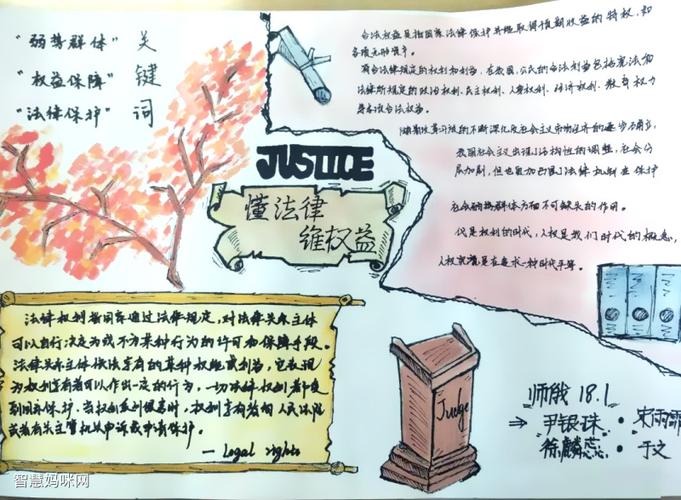 "弱势群体" 关
"权益保障" 键
"法律保护" 词
合法权益是指国家法律保护并能取得预期收益的特权,和
各项无形资产。
有合法规定的权利和利益。在我国,公民的合法利益包括宪法和
法律所规定的政治权利、民主权利、人身权利、经济权利、教育权力
等各项合法权益。
随着改革的不断深化及社会主义市场经济的逐步确立,
我国社会主义出现了结构性的调整,社会分
层加剧,但也更加凸显了法律机制在保护
社会弱势群体方面不可缺失的作用。
代是权利的时代,人权是我们时代的概念,
人权就是在追求一种时代平等。
JUSTICE
懂法律
维权益
法律权利指国家通过法律规定,对法律关系主体
可以自行决定为或不为某种行为的许可和保障手段。
法律关系主体依法享有的某种权能或利益,它表现
为权利享有者可以作出一定的行为,一切法律权利都受
到国家保护。当权利受到侵害时,权利享有者向人民法院
或者有关主管机关申诉或申请保护。
— Legal rights
Judge
师俄 18.1
⇒ 尹银珠·宋雨霏
徐麟蕊·于文
智慧妈咪网